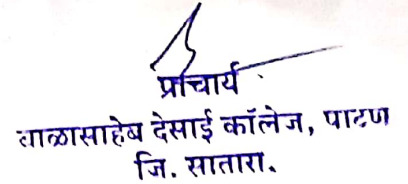 प्राचार्य
बाळासाहेब देसाई कॉलेज, पाटण
जि. सातारा.